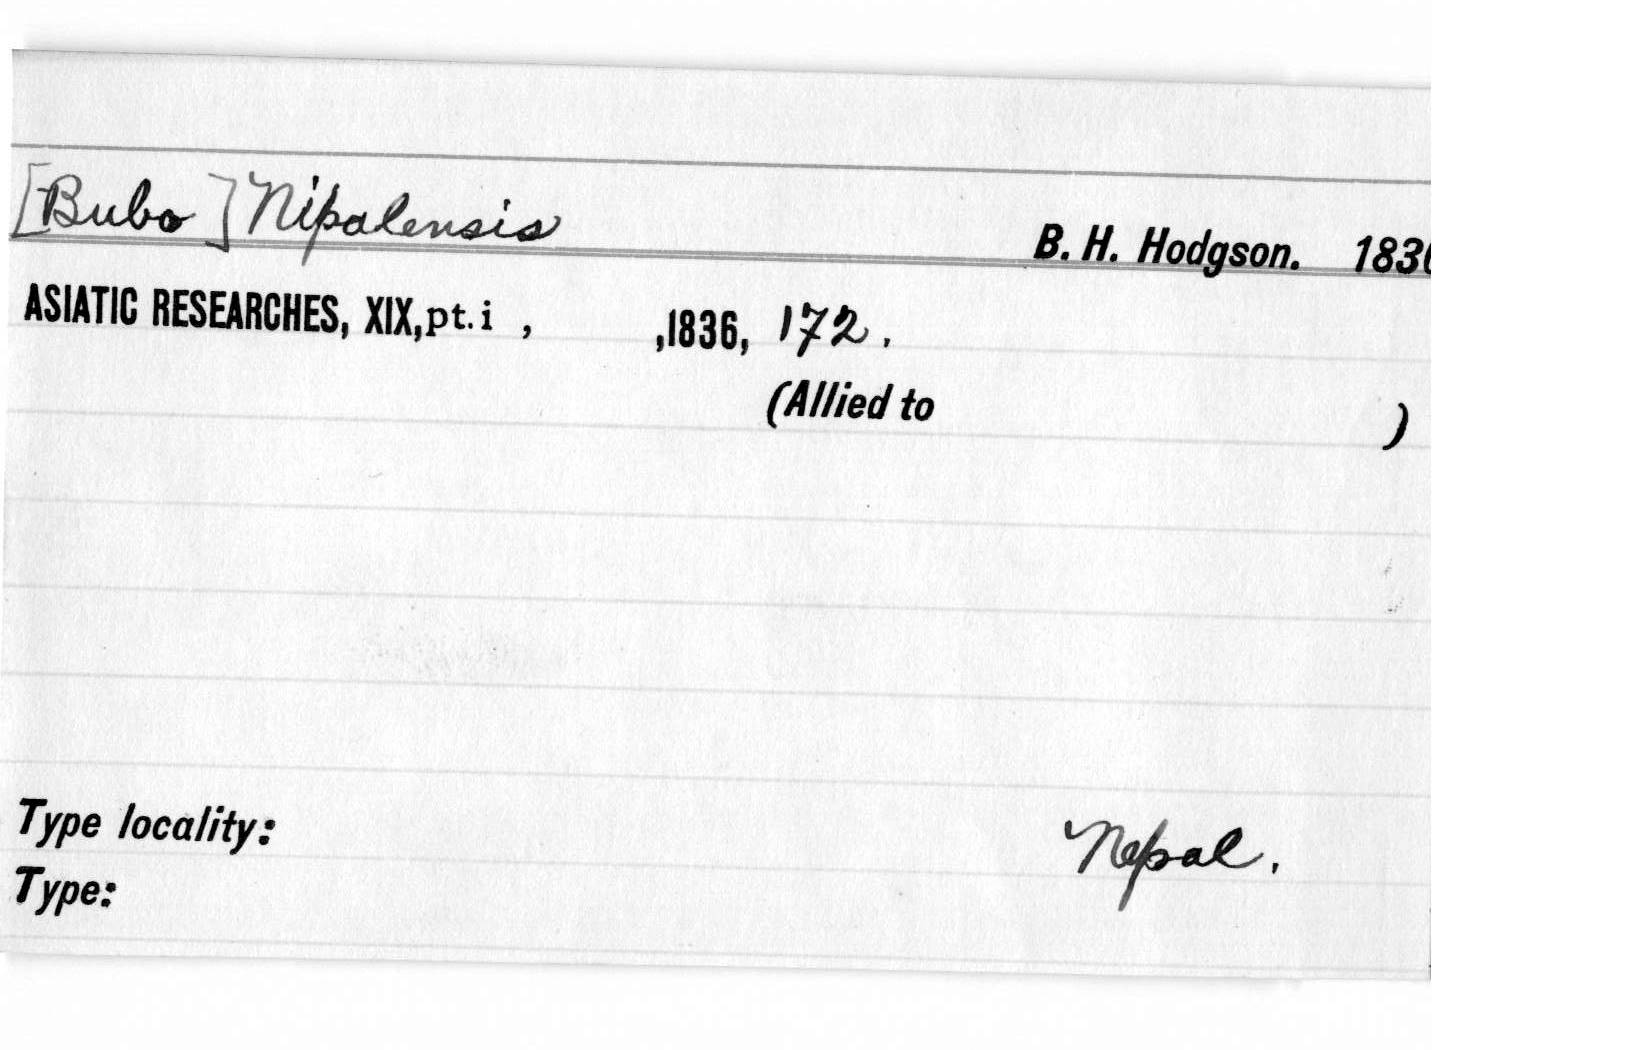 [Bubo] Nipalensis B. H. Hodgson. 1836
ASIATIC RESEARCHES, XIX, pt. i , ,1836, 172.
(Allied to )
Type locality: Nepal.
Type: